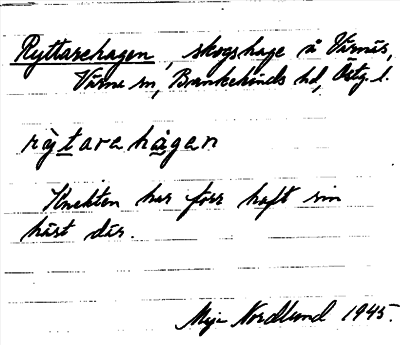 Ryttarehagen, skogshage å Värnäs,
Värna sn, Bankekinds hd, Östg. l.
rỳtarehàgen
Knekten har förr haft sin
häst där.
Maja Nordlund 1945.